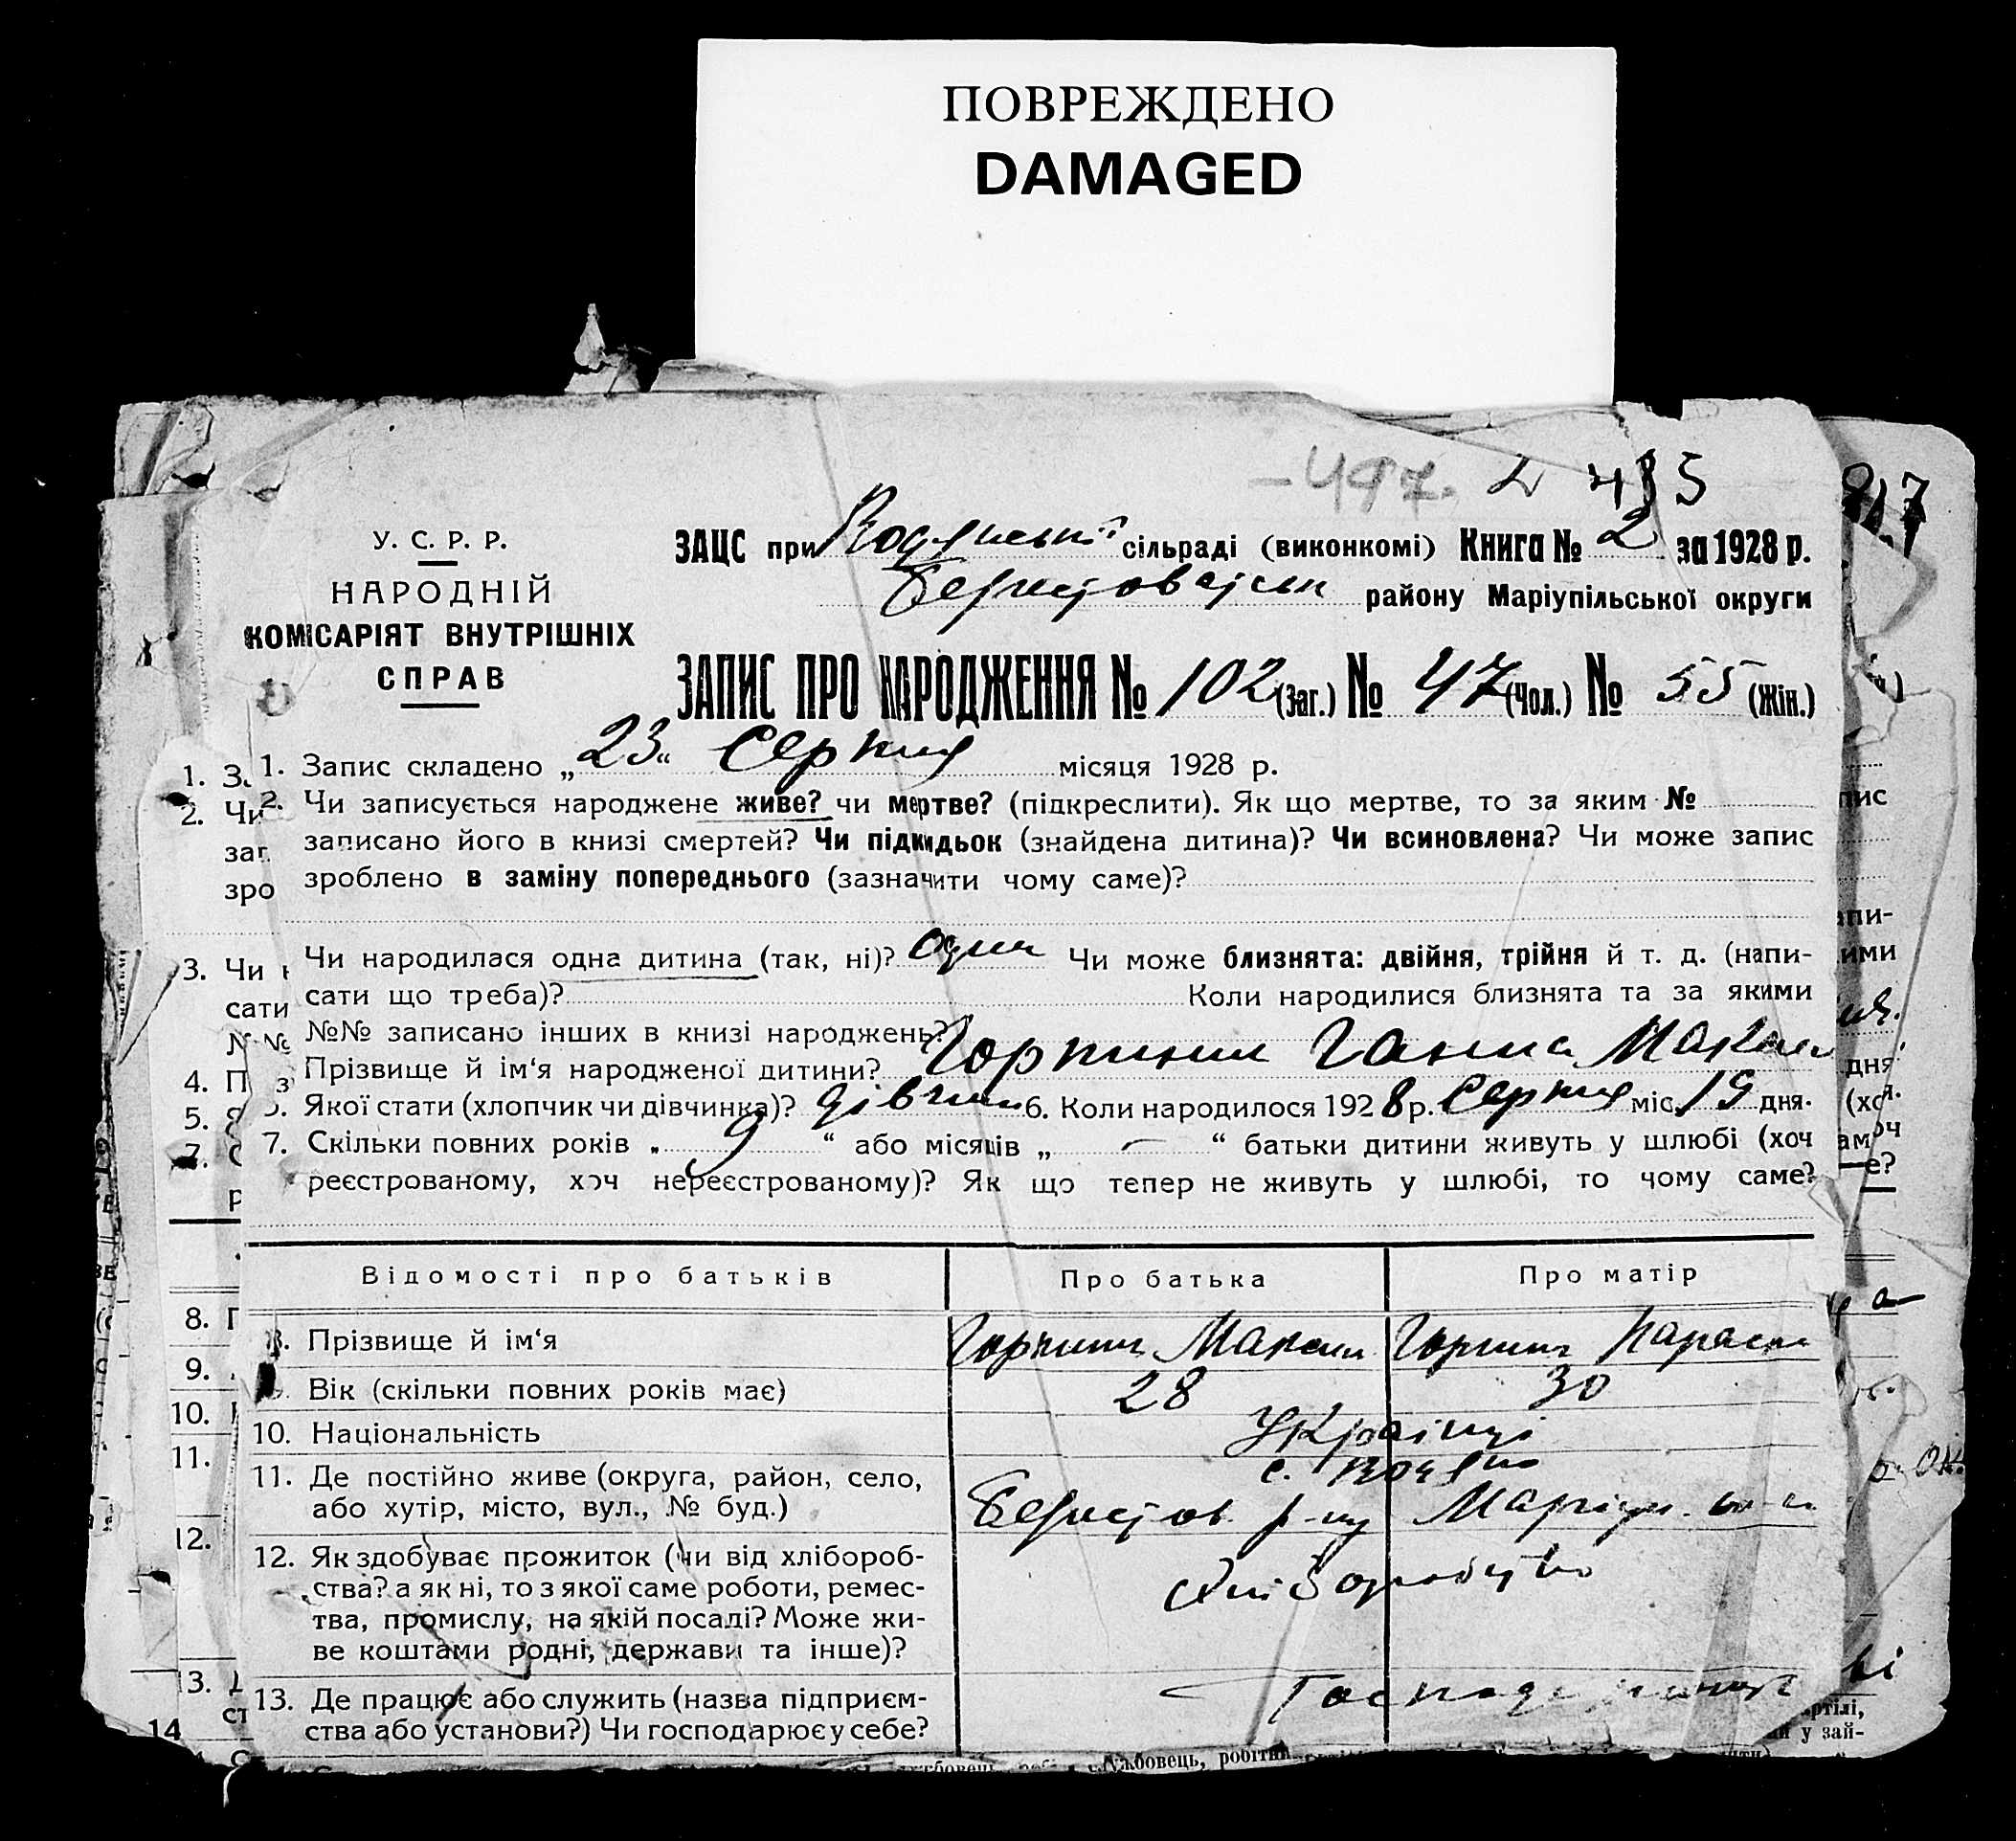 ПОВРЕЖДЕНО
DAMAGED
-497. 2 485
У. С. Р. Р.
НАРОДНІЙ
КОМІСАРІЯТ ВНУТРІШНІХ
СПРАВ
ЗАЦС при Водянській сільраді (виконкомі) Книга № 2 за 1928 р.
району Маріупільської округи
ЗАПИС ПРО НАРОДЖЕННЯ № 102 (Заг.) № 47 (Чол.) № 55 (Жін.)
1. Запис складено „23“ Серпня місяця 1928 р.
2. Чи записується народжене живе? чи мертве? (підкреслити). Як що мертве, то за яким №
записано його в книзі смертей? Чи підкидьок (знайдена дитина)? Чи всиновлена? Чи може запис
зроблено в заміну попереднього (зазначити чому саме)?
Чи народилася одна дитина (так, ні)? одна Чи може близнята: двійня, трійня й т. д. (напи-
сати що треба)? Коли народилися близнята та за якими
№№ записано інших в книзі народжень?
Прізвище й ім‘я народженої дитини? Ганна
Якої стати (хлопчик чи дівчинка)? дівчин 6. Коли народилося 1928 р. Серпня міс. 19 дня.
7. Скільки повних років „ 9 “ або місяців „ — “ батьки дитини живуть у шлюбі (хоч
реєстрованому, хоч нереєстрованому)? Як що тепер не живуть у шлюбі, то чому саме?
Відомості про батьків Про батька Про матір
8. Прізвище й ім‘я Максим Параска
Вік (скільки повних років має) 28 30
10. Національність Українці
11. Де постійно живе (округа, район, село, с. Водяно
або хутір, місто, вул., № буд.) Берестов. р-ну Маріуп.
12. Як здобуває прожиток (чи від хлібороб- Хліборобство
ства? а як ні, то з якої саме роботи, ремес-
тва, промислу, на якій посаді? Може жи-
ве коштами родні, держави та інше)?
13. Де працює або служить (назва підприєм-
ства або установи?) Чи господарює у себе?